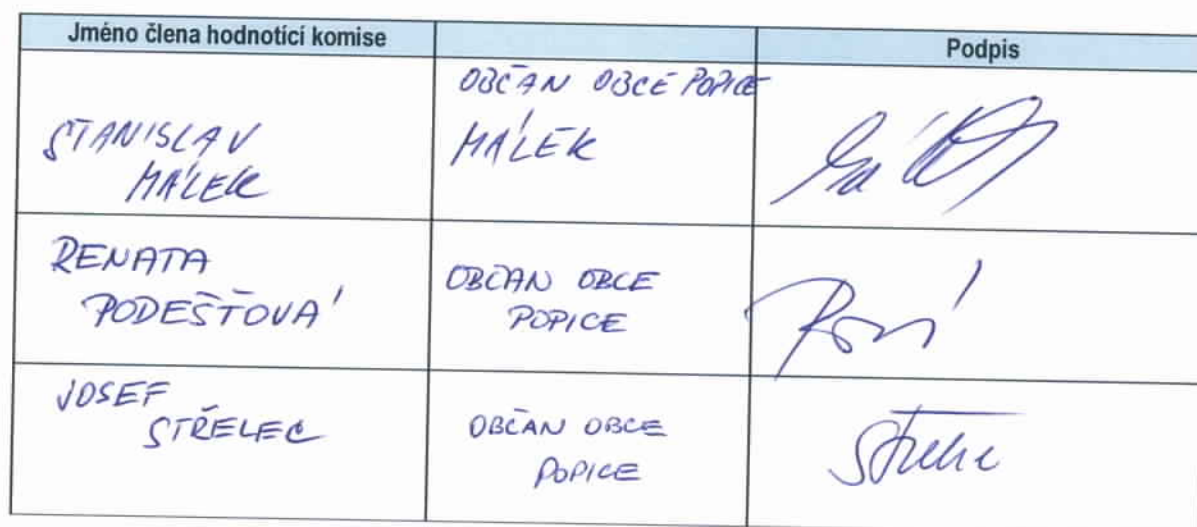 Jméno člena hodnotící komise
Podpis
STANISLAV
MÁLEK
OBČAN OBCE POPICE
MÁLEK
RENATA
PODEŠŤOVÁ
OBČAN OBCE
POPICE
JOSEF
STŘELEC
OBČAN OBCE
POPICE